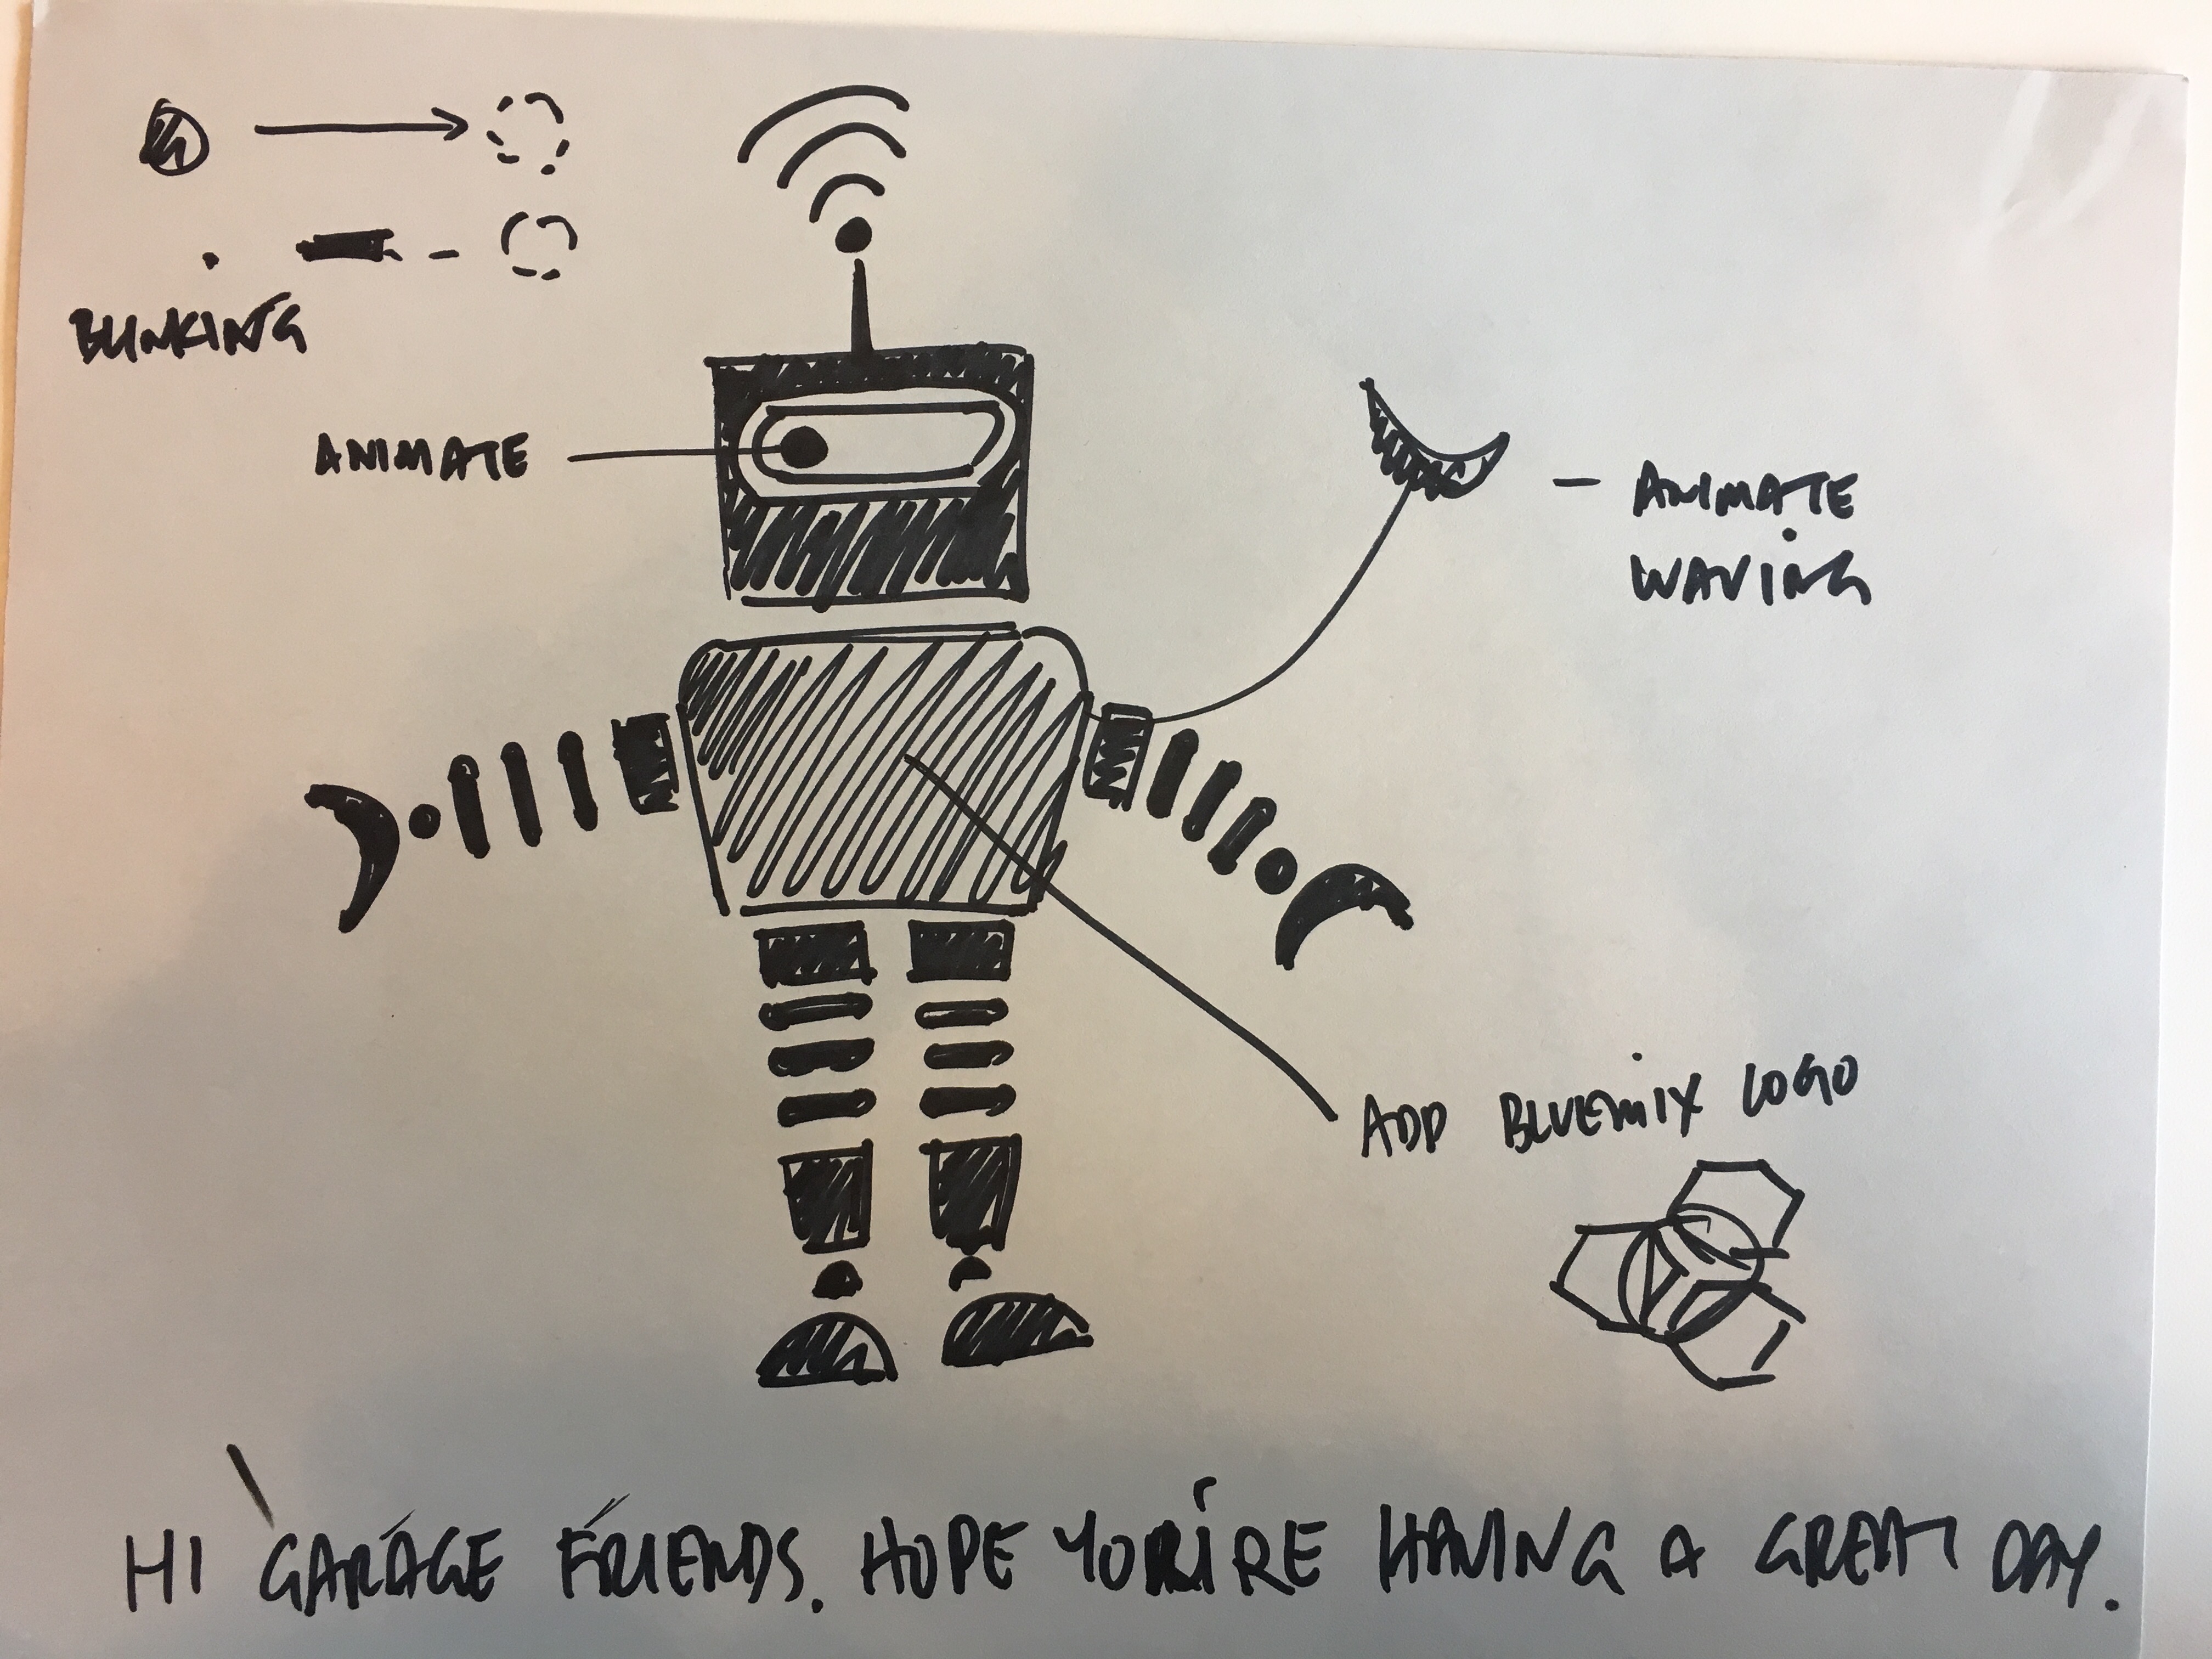 BLINKING
ANIMATE
- ANIMATE
WAVING
ADD BLUEMIX LOGO
HI GARAGE FRIENDS. HOPE YOU'RE HAVING A GREAT DAY.